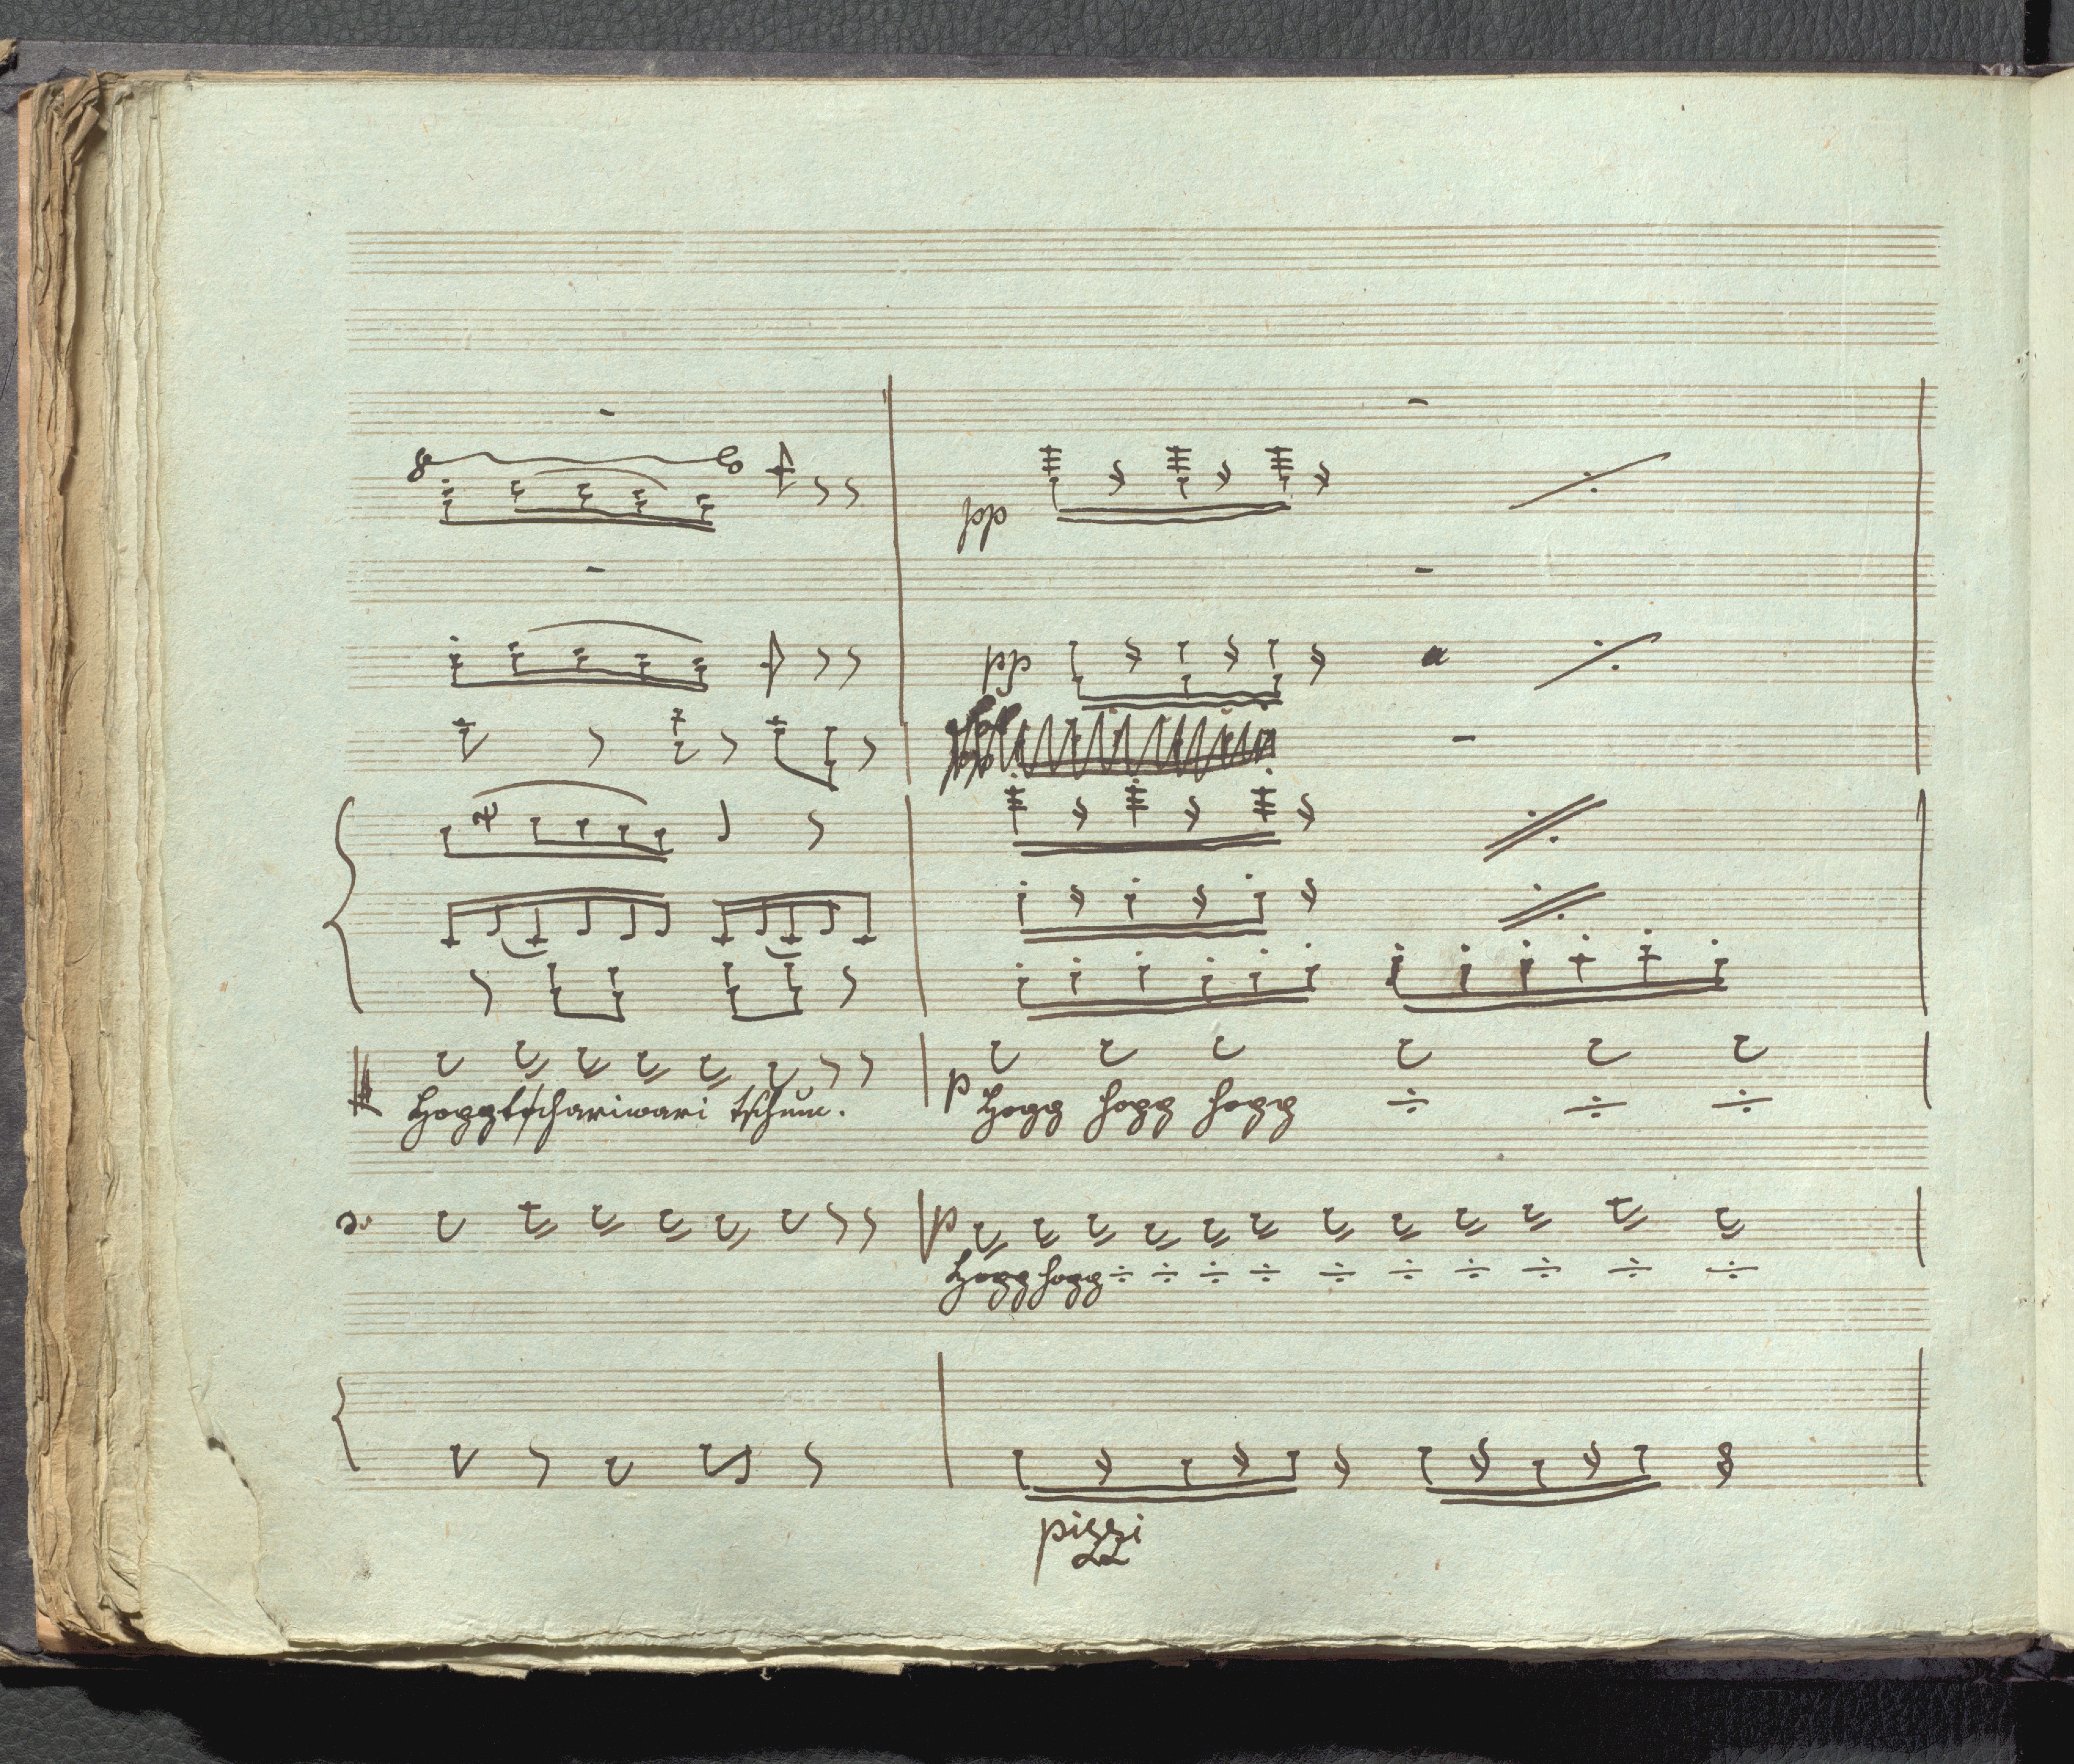 8
pp
pp
Hoggtschariwari tschum.
p Hogg hogg hogg ÷ ÷ ÷
p
Hogg hogg ÷ ÷ ÷ ÷ ÷ ÷ ÷ ÷ ÷ ÷
pizzi